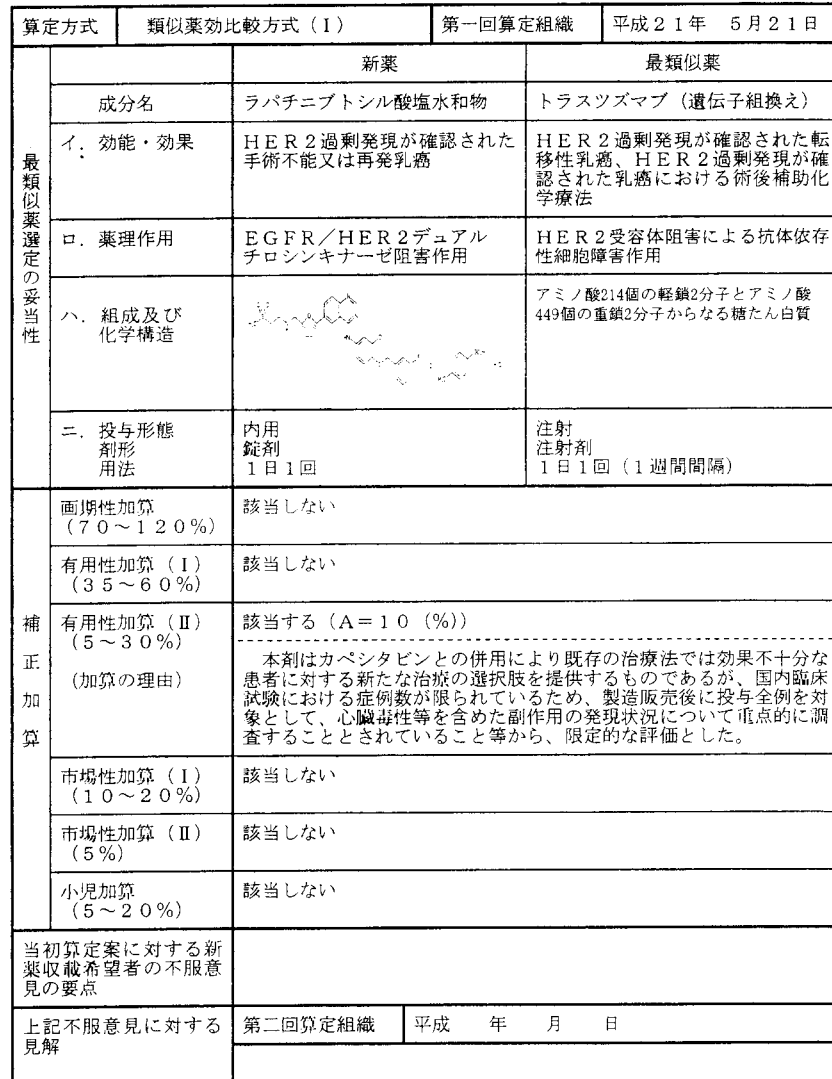 算定方式 類似薬効比較方式（Ⅰ） 第一回算定組織 平成２１年　５月２１日
最類似薬選定の妥当性
新薬 最類似薬
成分名 ラパチニブトシル酸塩水和物 トラスツズマブ（遺伝子組換え）
イ．効能・効果
ＨＥＲ２過剰発現が確認された
手術不能又は再発乳癌
ＨＥＲ２過剰発現が確認された転
移性乳癌、ＨＥＲ２過剰発現が確
認された乳癌における術後補助化
学療法
ロ．薬理作用
ＥＧＦＲ／ＨＥＲ２デュアル
チロシンキナーゼ阻害作用
ＨＥＲ２受容体阻害による抗体依存
性細胞障害作用
ハ．組成及び
化学構造
アミノ酸214個の軽鎖2分子とアミノ酸
449個の重鎖2分子からなる糖たん白質
ニ．投与形態
剤形
用法
内用
錠剤
１日１回
注射
注射剤
１日１回（１週間間隔）
補正加算
画期性加算
（７０～１２０％）
該当しない
有用性加算（Ⅰ）
（３５～６０％）
該当しない
有用性加算（Ⅱ）
（５～３０％）
（加算の理由）
該当する（Ａ＝１０（％））
本剤はカペシタビンとの併用により既存の治療法では効果不十分な
患者に対する新たな治療の選択肢を提供するものであるが、国内臨床
試験における症例数が限られているため、製造販売後に投与全例を対
象として、心臓毒性等を含めた副作用の発現状況について重点的に調
査することとされていること等から、限定的な評価とした。
市場性加算（Ⅰ）
（１０～２０％）
該当しない
市場性加算（Ⅱ）
（５％）
該当しない
小児加算
（５～２０％）
該当しない
当初算定案に対する新
薬収載希望者の不服意
見の要点
上記不服意見に対する
見解
第二回算定組織 平成　　年　　月　　日